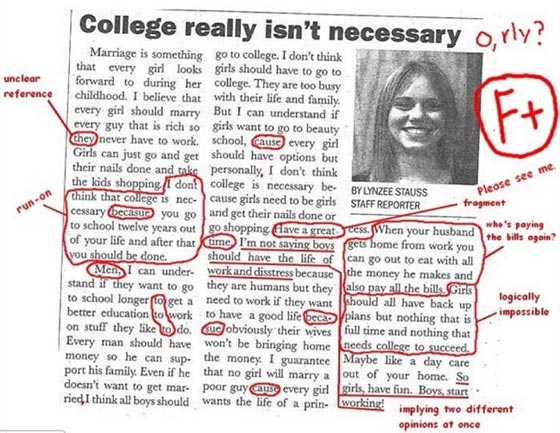 College really isn't necessary
o, rly?
F+
Please see me.
unclear
reference
Marriage is something
that every girl looks
forward to during her
childhood. I believe that
every girl should marry
every guy that is rich so
they never have to work.
Girls can just go and get
their nails done and take
the kids shopping. I don't
think that college is nec-
cessary becasue you go
to school twelve years out
of your life and after that
you should be done.
run-on
Men, I can under-
stand if they want to go
to school longer to get a
better education to work
on stuff they like to do.
Every man should have
money so he can sup-
port his family. Even if he
doesn't want to get mar-
ried, I think all boys should
go to college. I don't think
girls should have to go to
college. They are too busy
with their life and family.
But I can understand if
girls want to go to beauty
school, cause every girl
should have options but
personally, I don't think
college is necessary be-
cause girls need to be girls
and get their nails done or
go shopping. Have a great
time. I'm not saying boys
should have the life of
work and disstress because
they are humans but they
need to work if they want
to have a good life beca-
sue obviously their wives
won't be bringing home
the money. I guarantee
that no girl will marry a
poor guy cause every girl
wants the life of a prin-
BY LYNZEE STAUSS
STAFF REPORTER
fragment
cess. When your husband
gets home from work you
can go out to eat with all
the money he makes and
also pay all the bills. Girls
should all have back up
plans but nothing that is
full time and nothing that
needs college to succeed.
Maybe like a day care
out of your home. So
girls, have fun. Boys, start
working!
who's paying
the bills again?
logically
impossible
implying two different
opinions at once